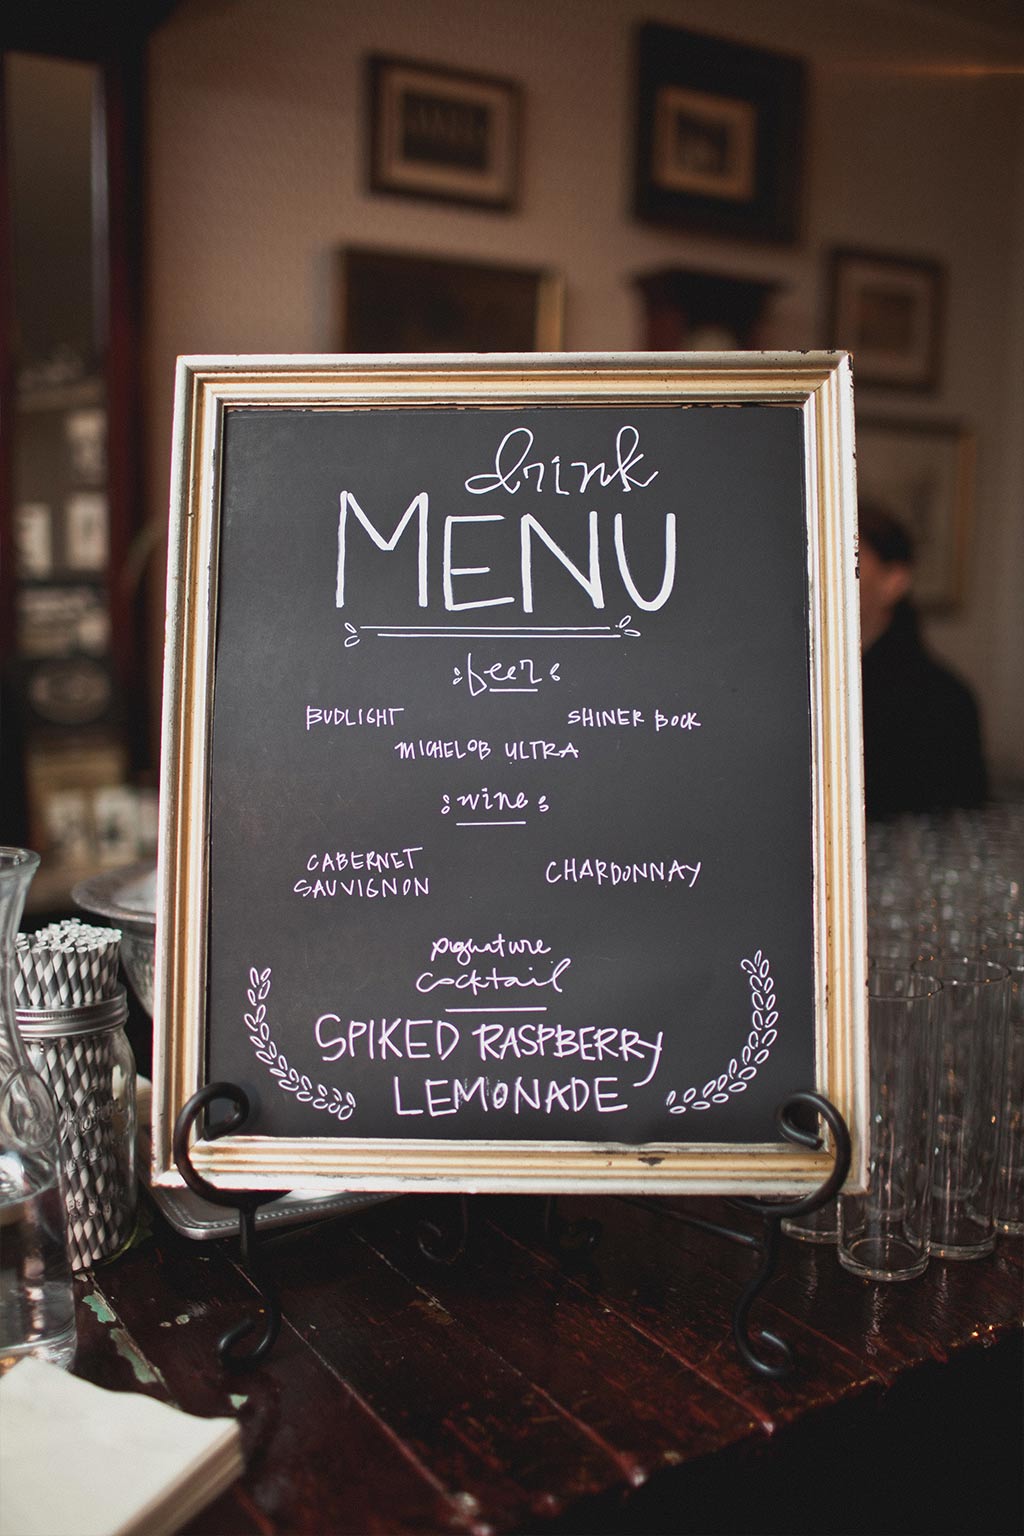 drink
MENU
beer
BUDLIGHT SHINER BOCK
MICHELOB ULTRA
wine
CABERNET
SAUVIGNON
CHARDONNAY
signature
cocktail
SPIKED RASPBERRY
LEMONADE